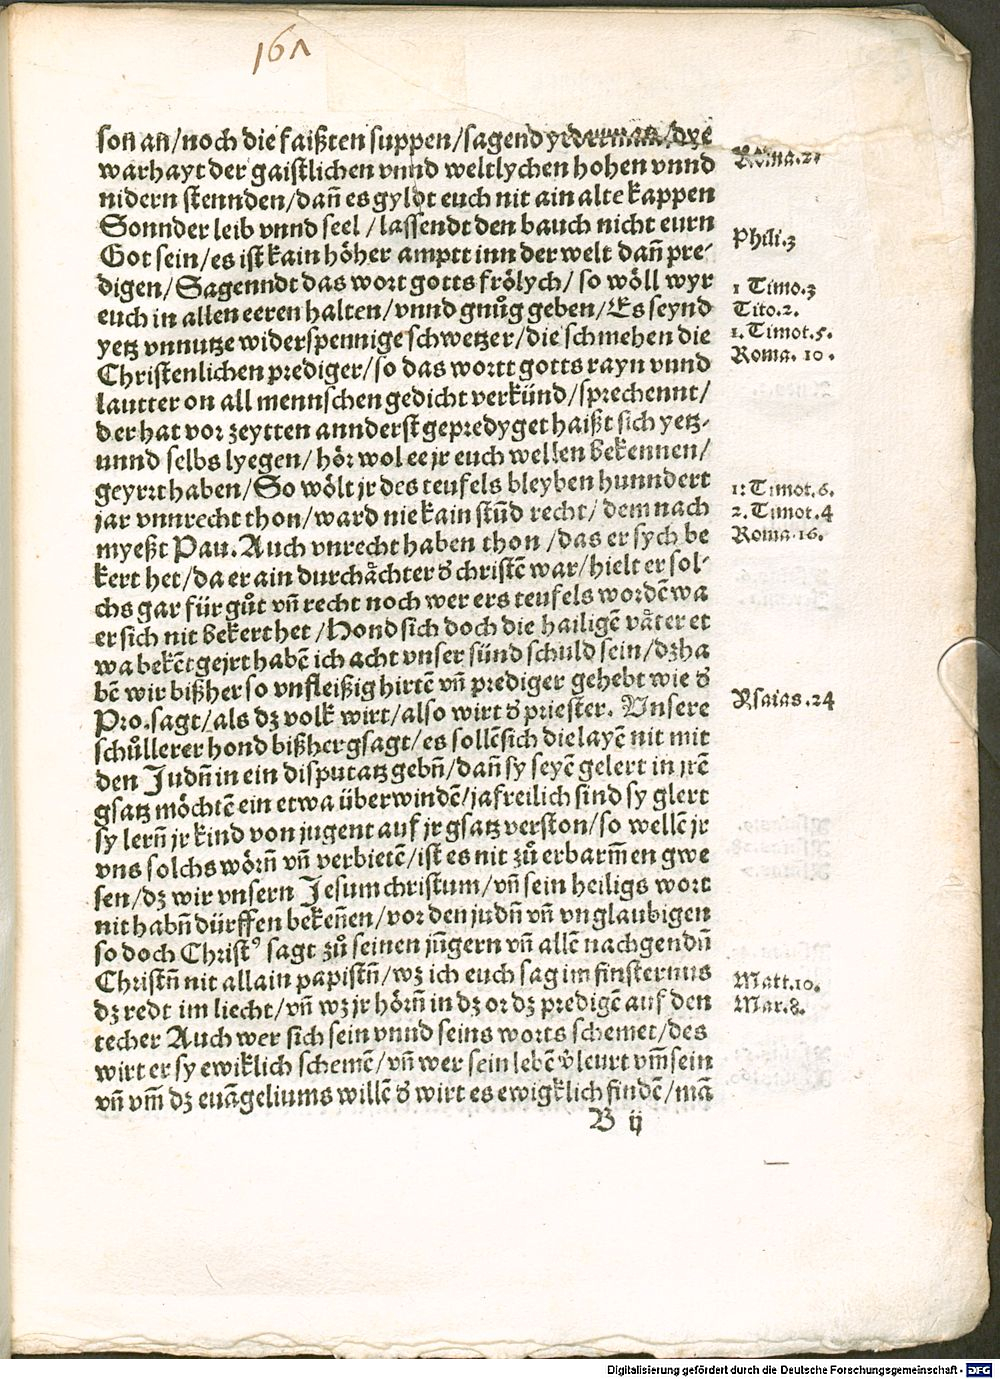 161
son an/noch die faißten suppen/sagend yederman/dye
warhayt der gaistlichen vnnd weltlychen hohen vnnd
nidern stennden/dañ es gyldt euch nit ain alte kappen
Sonnder leib vnnd seel/lassendt den bauch nicht eurn
Got sein/es ist kain höher amptt inn der welt dañ pre⸗
digen/Sagenndt das wort gotts frölych/so wöll wyr
euch in allen eeren halten/vnnd gnůg geben/Es seynd
yetz vnnutze widerspennige schwetzer/die schmehen die
Christenlichen prediger/so das wortt gotts rayn vnnd
lautter on all mennschen gedicht verkünd/sprechennt/
der hat vor zeytten annderst gepredyget haißt sich yetz⸗
unnd selbs lyegen/hör wol ee jr euch wellen bekennen/
geyrrt haben/So wölt jr des teufels bleyben hunndert
jar vnnrecht thon/ward nie kain stūd recht/demnach
myeßt Pau. Auch vnrecht haben thon/das er sych be
kert het/da er ain durchåchter ď christē war/hielt er sol⸗
chs gar für gůt vñ recht noch wer ers teufels wordē wa
er sich nit bekert het/Hond sich doch die hailigē våter et
wa bekēt gejrt habē ich acht vnser sünd schuld sein/dz ha
bē wir bißher so vnfleißig hirtē vñ prediger gehebt wie ď
Pro. sagt/als dz volk wirt/also wirt ď priester. Vnsere
schůllerer hond bißher gsagt/es sollē sich die layē nit mit
den Judñ in ein disputatz gebñ/dañ sy seyē gelert in jrē
gsatz möchtē ein etwa überwindē/ja freilich sind sy glert
sy lerñ jr kind von jugent auf jr gsatz verston/so wellē jr
vns solchs wörñ vñ verbietē/ist es nit zů erbarm̄en gwe
sen/dz wir vnsern Jesum christum/vñ sein heiligs wort
nit habñ dürffen bekeñen/vor den judñ vñ vnglaubigen
so doch Christꝰ sagt zů seinen jūgern vñ allē nachgendñ
Christñ nit allain papistñ/wz ich euch sag im finsternus
dz redt im liecht/vñ wz jr hörñ in dz or dz predigē auf den
techer Auch wer sich sein vnnd seins worts schemet/des
wirt er sy ewiklich schemē/vñ wer sein lebē v̄leurt vm̄ sein
vñ vm̄ dz euāgeliums willē ď wirt es ewigklich findē/mā
B ij
Roma.2.
Phili.3
1 Timo.3
Tito.2.
1. Timot.5.
Roma. 10.
1: Timot.6.
2. Timot.4
Roma.16.
Ysaias.24
Matt.10.
Mar.8.
Digitalisierung gefördert durch die Deutsche Forschungsgemeinschaft - DFG